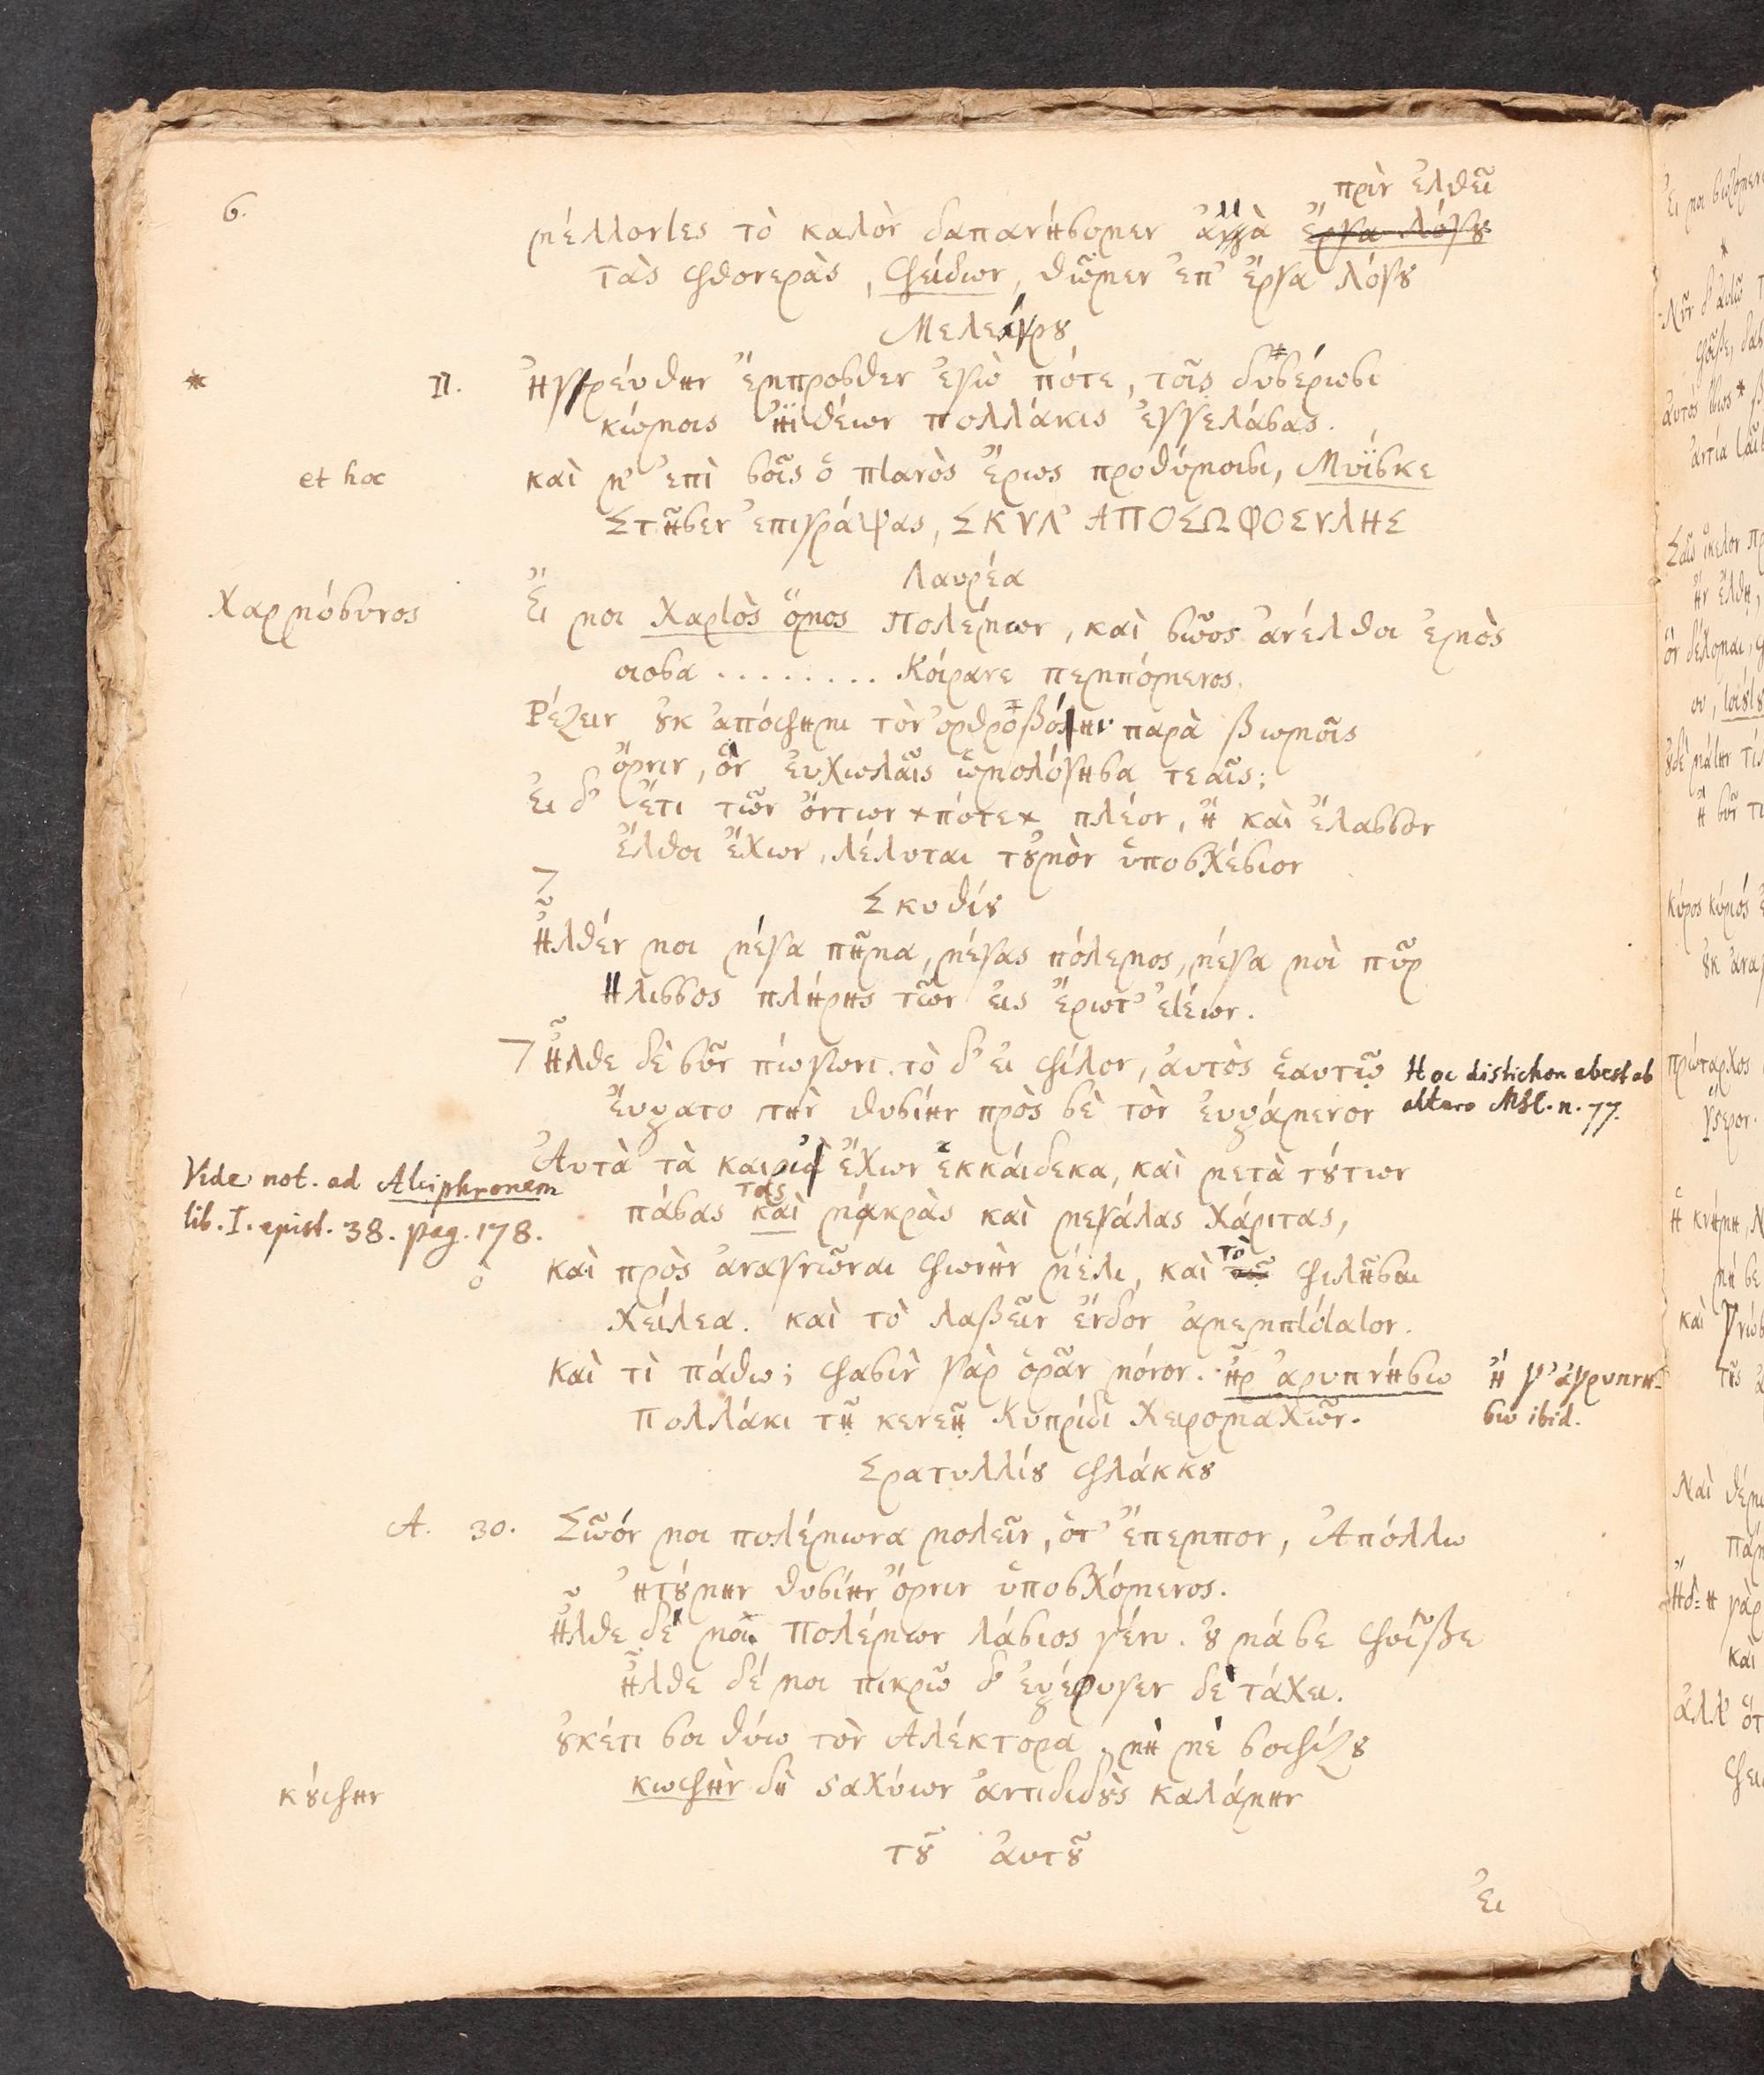 6.
πρὶν ἐλθεῖν
μέλλοντες τὸ καλὸν δαπανήσομεν ἀλλὰ ἔργα λόγου
τὰς φθονερὰς, Φείδων, θῶμεν ἐπ' ἔργα λόγου
Μελεάγρου
* Π. Ἠγρεύθην ἔμπροσθεν ἐγὼ πότε, τοῖς δυσέρωσι
κώμοις ἠϊθέων πολλάκις ἐγγελάσας.
et hoc καὶ μ' ἐπὶ σοῖς ὁ πτανὸς Ἔρως προθύροισι, Μυΐσκε
Στῆσεν ἐπιγράψας, ΣΚΥΛ' ΑΠΟ ΣΩΦΟΣΥΛΗΣ
Λαυρέα
Χαρμόσυνος Ἔι μοι Χαρτὸς ὅμος Πολέμων, καὶ σῶος ἀνέλθοι ἐμὸς
οιοσα ........ Κοίρανε πεμπόμενος.
Ῥέζειν οὐκ ἀπόφημι τὸν ὀρθροβόην παρὰ βωμοῖς
ὄρνιν, ὃν ἐυχωλαῖς ὡμολόγησα τεαῖς;
Ἐι δ' ἔτι τῶν ὄντων *πότε* πλέον, ἢ καὶ ἔλασσον
Ἔλθοι ἔχων, λέλυται τοὐμὸν ὑποσχέσιον
Σκυθίου
7 Ἦλθέν μοι μέγα πῆμα, μέγας πόλεμος, μέγα μοὶ πῦρ
Ἤλισσος πλήρης τῶν ἐις ἔρωτ' ἐτέων.
7 Ἦλθε δὲ σῦν πώγωνι. τὸ δ' ἐι φίλον, ἀυτὸς ἑαυτῷ Hoc distichon abest ab
Ἔυξατο τὴν θυσίην πρὸς σὲ τὸν ἐυξάμενον altero MSt. n. 77.
Ἀυτὰ τὰ καιρία ἔχων ἑκκάιδεκα, καὶ μετὰ τούτων
Vide not. ad Alciphronem
πάσας καὶ τὰς μάκρὰς καὶ μεγάλας χάριτας,
lib. I. epist. 38. pag. 178.
ὁ καὶ πρὸς ἀναγνῶναι φωνὴν μέλι, καὶ τὸ φιλῆσαι
χείλεα. καὶ τὸ λαβεῖν ἔνδον ἀμεμπτότατον.
καὶ τὶ πάθω; φασὶν γὰρ ὁρᾶν μόνον. ἦρ ἀρυπνήσω ἤ γ' ἀγρυπνή-
Πολλάκι τῇ κενεῇ Κυπρίδι χειρομαχῶν. σω ibid.
Στατυλλίου Φλάκκου
A. 30. Σῶόν μοι πολέμωνα μολεῖν, ὁτ' ἔπεμπον, Ἀπόλλω
ἠτούμην θυσίην ὄρνιν ὑποσχόμενος.
Ἦλθε δέ μοι Πολέμων λάσιος γένυν. οὐ μά σε Φοῖβε
Ἦλθε δέ μοι πικρῶ δ' ἐξέφυγεν δὲ τάχει.
οὐκέτι σοι θύω τὸν Ἀλέκτορα. μή μὲ σοφίζου
κούφην κωφὴν δὴ σταχύων ἀντιδιδοὺς καλάμην
τοῦ ἀυτοῦ
Ἐι